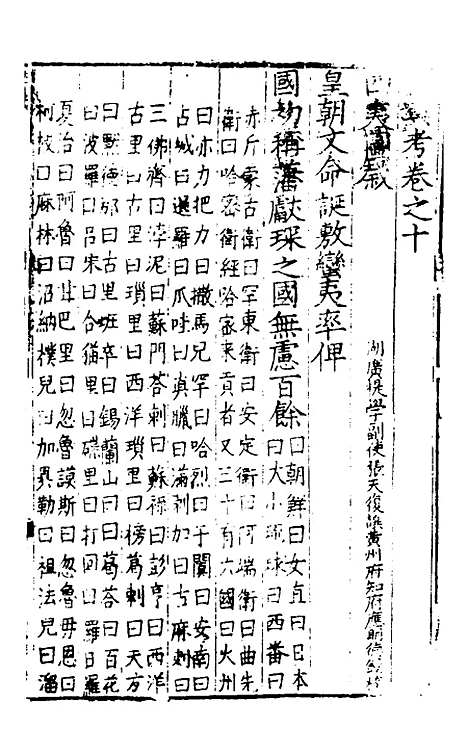 考卷之十
湖廣提學副使張天復譔黄州府知府應明德
四夷圖敘
皇朝文命誕敷蠻夷率俾
國初稱藩獻琛之國無慮百餘曰朝鮮曰女直曰日本曰大小琉球曰西番曰
赤斤蒙古衛曰罕東衛曰安定衛曰阿端衛曰曲先
衛曰哈密衛經哈密來貢者又三十有六國曰火州
曰亦力把力曰撒馬兒罕曰哈烈曰于闐曰安南曰
占城曰暹羅曰爪哇曰真臘曰滿剌加曰古麻剌曰
三佛齊曰浡泥曰蘇門荅剌曰蘇祿曰彭亨曰西洋
古里曰古里曰瑣里曰西洋瑣里曰榜葛剌曰天方
曰默德那曰古里班卒曰錫蘭山曰曰葛荅曰百花
曰波羅曰吕宋曰合猫里曰碟里曰打回曰羅日羅
夏治曰阿魯曰甘巴里曰忽魯謨斯曰忽魯毋恩曰
利枝曰麻林曰沼納樸兒曰加異勒曰祖法兒曰溜